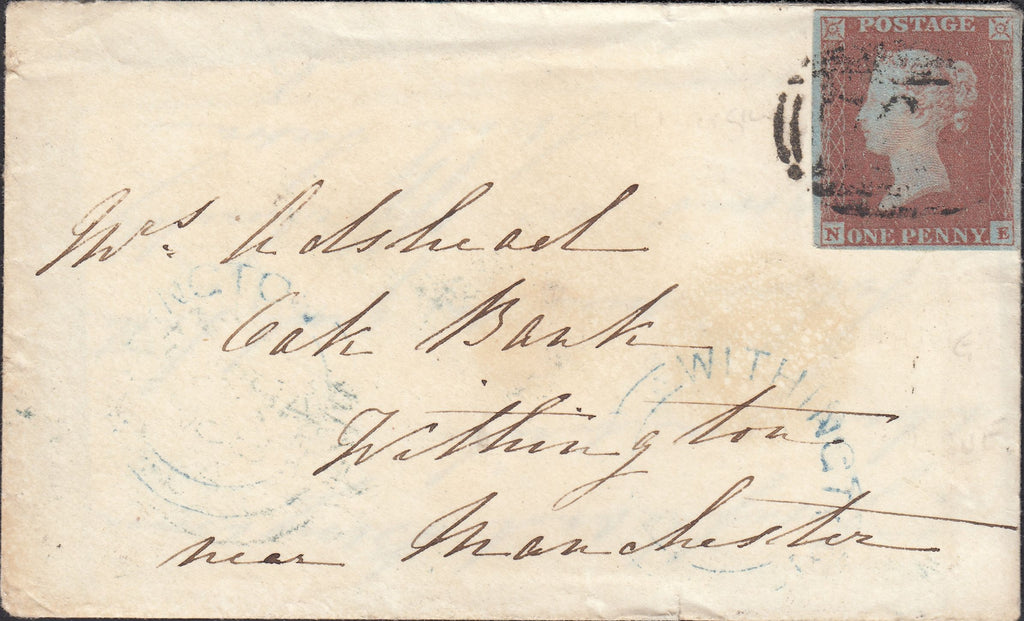 POSTAGE
N ONE PENNY. E
Mrs. Adshead
Oak Bank
Withington
near Manchester
NGTO
WITHINGT